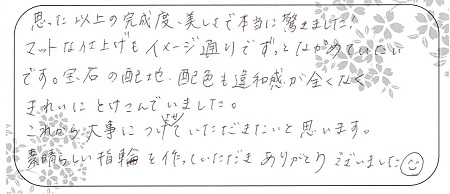 思った以上の完成度、美しさで本当に驚きました!
マットな仕上げもイメージ通りでずっとながめていたい
です。宝石の配地、配色も違和感が全くなく
きれいにとけこんでいました。
これから大事につけていただきたいと思います。
素晴らしい指輪を作っていただきありがとうございました